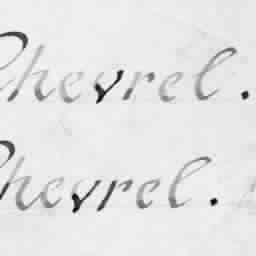 Chevrel.
Chevrel.